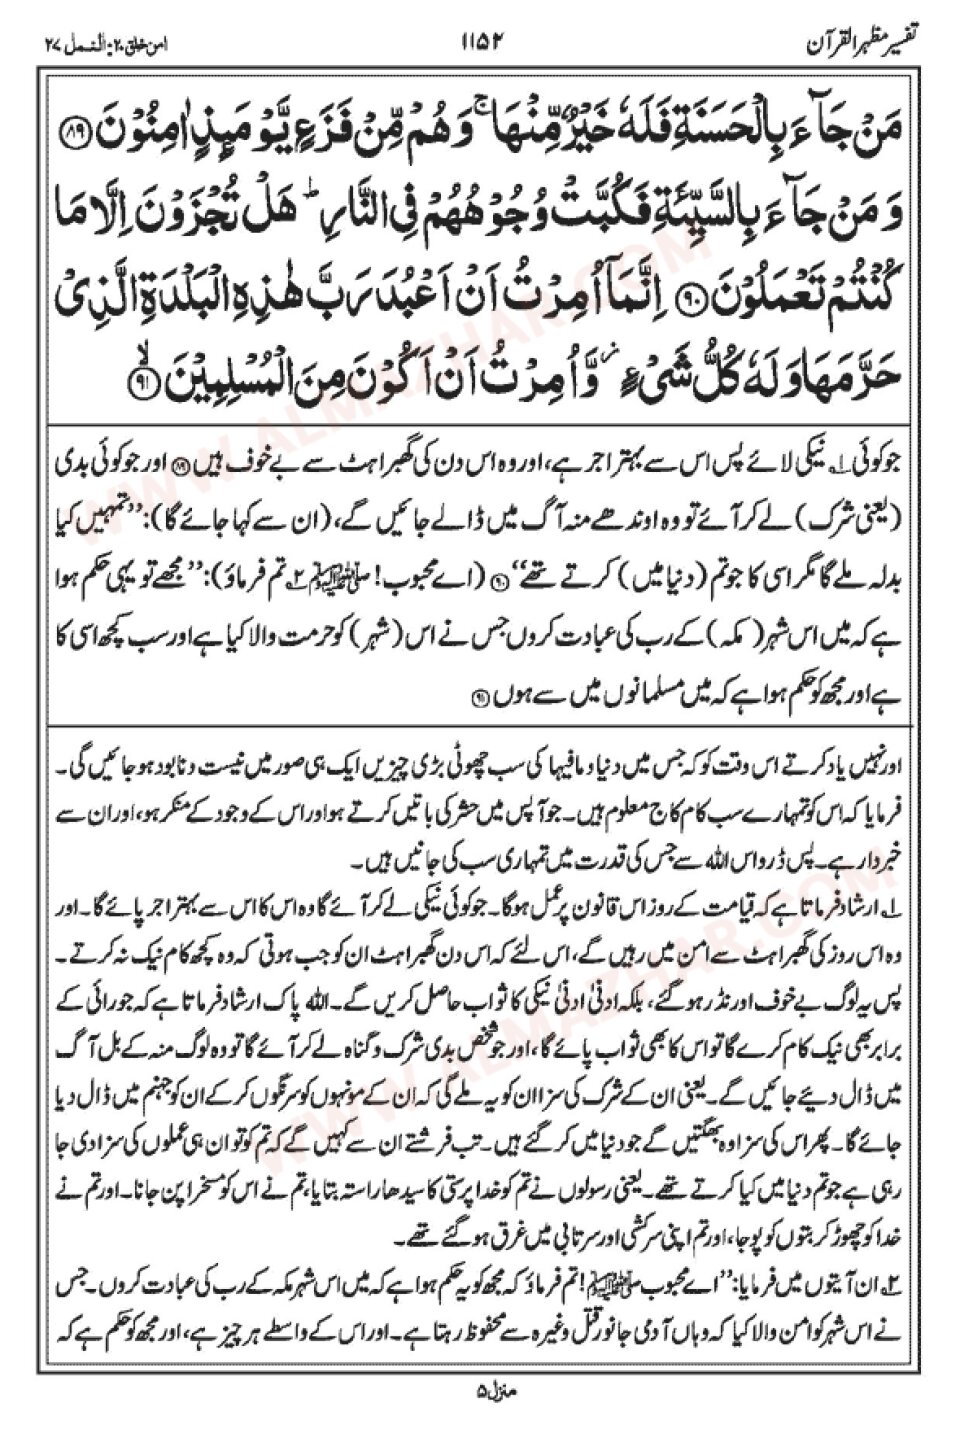 تفسیر مظہر القرآن
۱۱۵۲
امن خلق ۲۰: النمل ۲۷
مَنْ جَآءَ بِالْحَسَنَةِ فَلَهٗ خَيْرٌ مِّنْهَا ۚ وَهُمْ مِّنْ فَزَعٍ يَّوْمَىِٕذٍ اٰمِنُوْنَ ﴿۸۹﴾
وَمَنْ جَآءَ بِالسَّيِّئَةِ فَكُبَّتْ وُجُوْهُهُمْ فِى النَّارِ ؕ هَلْ تُجْزَوْنَ اِلَّا مَا
كُنْتُمْ تَعْمَلُوْنَ ﴿۹۰﴾ اِنَّمَاۤ اُمِرْتُ اَنْ اَعْبُدَ رَبَّ هٰذِهِ الْبَلْدَةِ الَّذِىْ
حَرَّمَهَا وَلَهٗ كُلُّ شَىْءٍ ؗ وَّاُمِرْتُ اَنْ اَكُوْنَ مِنَ الْمُسْلِمِيْنَ ﴿۹۱﴾ ۙ
جو کوئی ۱؎ نیکی لائے پس اس سے بہتر اجر ہے، اور وہ اس دن کی گھبراہٹ سے بے خوف ہیں ﴿۸۹﴾ اور جو کوئی بدی
(یعنی شرک) لے کر آئے تو وہ اوندھے منہ آگ میں ڈالے جائیں گے، (ان سے کہا جائے گا): ”تمہیں کیا
بدلہ ملے گا مگر اسی کا جو تم (دنیا میں) کرتے تھے“ ﴿۹۰﴾ (اے محبوب! ﷺ ۲؎ تم فرماؤ): ”مجھے تو یہی حکم ہوا
ہے کہ میں اس شہر (مکہ) کے رب کی عبادت کروں جس نے اس (شہر) کو حرمت والا کیا ہے اور سب کچھ اسی کا
ہے اور مجھ کو حکم ہوا ہے کہ میں مسلمانوں میں سے ہوں ﴿۹۱﴾
اور نہیں یاد کرتے اس وقت کو کہ جس میں دنیا و مافیہا کی سب چھوٹی بڑی چیزیں ایک ہی صور میں نیست و نابود ہو جائیں گی۔
فرمایا کہ اس کو تمہارے سب کام کاج معلوم ہیں۔ جو آپس میں حشر کی باتیں کرتے ہو اور اس کے وجود کے منکر ہو، اور ان سے
خبردار ہے۔ پس ڈرو اس اللہ سے جس کی قدرت میں تمہاری سب کی جانیں ہیں۔
۱؎ ارشاد فرماتا ہے کہ قیامت کے روز اس قانون پر عمل ہوگا۔ جو کوئی نیکی لے کر آئے گا وہ اس کا اس سے بہتر اجر پائے گا۔ اور
وہ اس روز کی گھبراہٹ سے امن میں رہیں گے، اس لئے کہ اس دن گھبراہٹ ان کو جب ہوتی کہ وہ کچھ کام نیک نہ کرتے۔
پس یہ لوگ بے خوف اور نڈر ہو گئے، بلکہ ادنیٰ ادنیٰ نیکی کا ثواب حاصل کریں گے۔ اللہ پاک ارشاد فرماتا ہے کہ جو رائی کے
برابر بھی نیک کام کرے گا تو اس کا بھی ثواب پائے گا، اور جو شخص بدی شرک و گناہ لے کر آئے گا تو وہ لوگ منہ کے بل آگ
میں ڈال دیئے جائیں گے۔ یعنی ان کے شرک کی سزا ان کو یہ ملے گی کہ ان کے مونہوں کو سرنگوں کر کے ان کو جہنم میں ڈال دیا
جائے گا۔ پھر اس کی سزا وہ بھگتیں گے جو دنیا میں کر گئے ہیں۔ تب فرشتے ان سے کہیں گے کہ تم کو تو ان ہی عملوں کی سزا دی جا
رہی ہے جو تم دنیا میں کیا کرتے تھے۔ یعنی رسولوں نے تم کو خدا پرستی کا سیدھا راستہ بتایا، تم نے اس کو مسخرا پن جانا۔ اور تم نے
خدا کو چھوڑ کر بتوں کو پوجا، اور تم اپنی سرکشی اور سرتابی میں غرق ہو گئے تھے۔
۲؎ ان آیتوں میں فرمایا: ”اے محبوب ﷺ! تم فرماؤ کہ مجھ کو یہ حکم ہوا ہے کہ میں اس شہر مکہ کے رب کی عبادت کروں۔ جس
نے اس شہر کو امن والا کیا کہ وہاں آدمی جانور قتل وغیرہ سے محفوظ رہتا ہے۔ اور اس کے واسطے ہر چیز ہے، اور مجھ کو حکم ہے کہ
منزل ۵
WWW.ALMAZHAR.COM
WWW.ALMAZHAR.COM